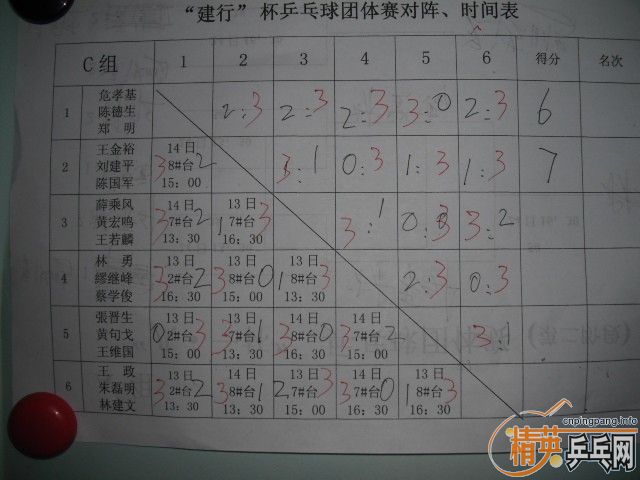 “建行”杯乒乓球团体赛对阵、时间表
C组 1 2 3 4 5 6 得分 名次
1 危孝基 陈德生 郑明 2:3 2:3 2:3 3:0 2:3 6
2 王金裕 刘建平 陈国军 14日 3 8#台 2 15：00 3:1 0:3 1:3 1:3 7
3 薛乘风 黄宏鸣 王若麟 14日 3 7#台 2 13：30 13日 1 7#台 3 16：30 3:1 0:3 3:2
4 林勇 缪继峰 蔡学俊 13日 3 2#台 2 16：30 13日 3 8#台 0 15：00 13日 1 8#台 3 13：30 2:3 0:3
5 張晋生 黄句戈 王维国 13日 0 2#台 3 15：00 13日 3 7#台 1 13：30 14日 3 8#台 0 16：30 14日 3 7#台 2 15：00 3:1
6 王政 朱磊明 林建文 13日 3 2#台 2 13：30 14日 3 8#台 1 13：30 13日 2 7#台 3 15：00 14日 3 7#台 0 16：30 13日 1 8#台 3 16：30
cnpingpang.info
精英乒乓网